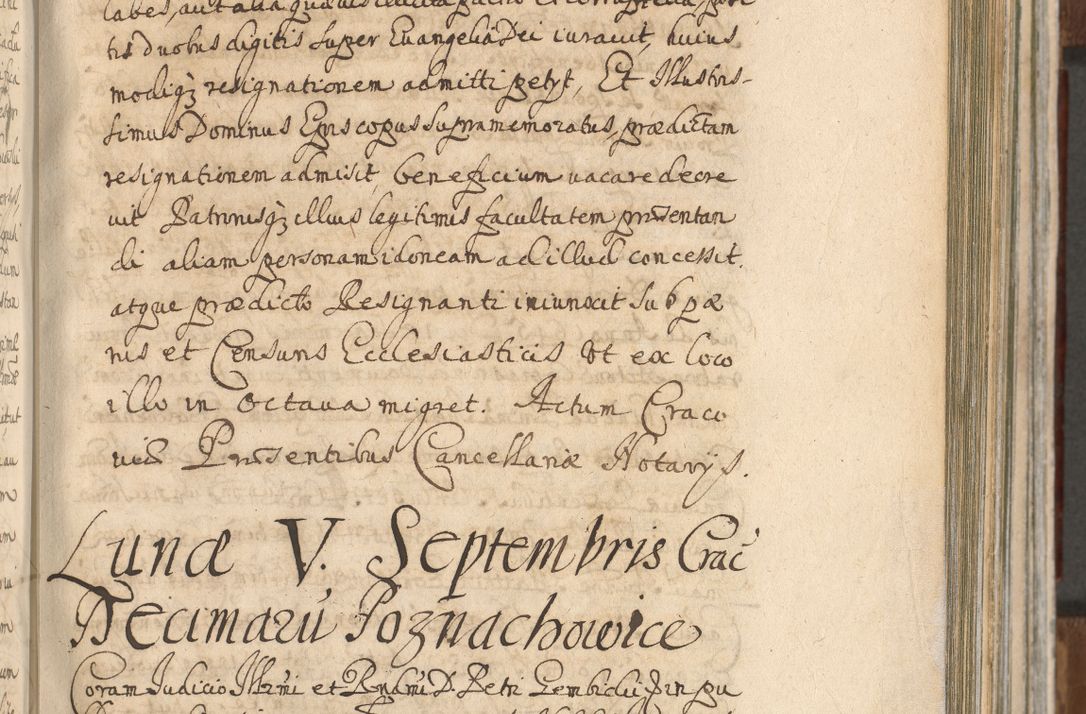 tis duobus digitis super Euangelia Dei iurauit, huius
modiqꝫ resignationem admitti petyt, Et Illustris-
simus Dominus Episcopus supramemoratus, prædictam
resignationem admisit, beneficium uacare decre
uit Patronisqꝫ illius legitimis facultatem præsentan
di aliam personam idoneam ad illud concessit.
atque prædicto Resignanti iniunxit sub pæ
nis et Censuris Ecclesiasticis Vt ex loco
illo in octaua migret. Actum Craco
uiæ Præsentibus Cancellariæ Notarijs.
Lunæ V. Septembris Crac
Decimarū Poznachowice
Coram Iudicio Illmi et Rndmi D. Petri Gembicki